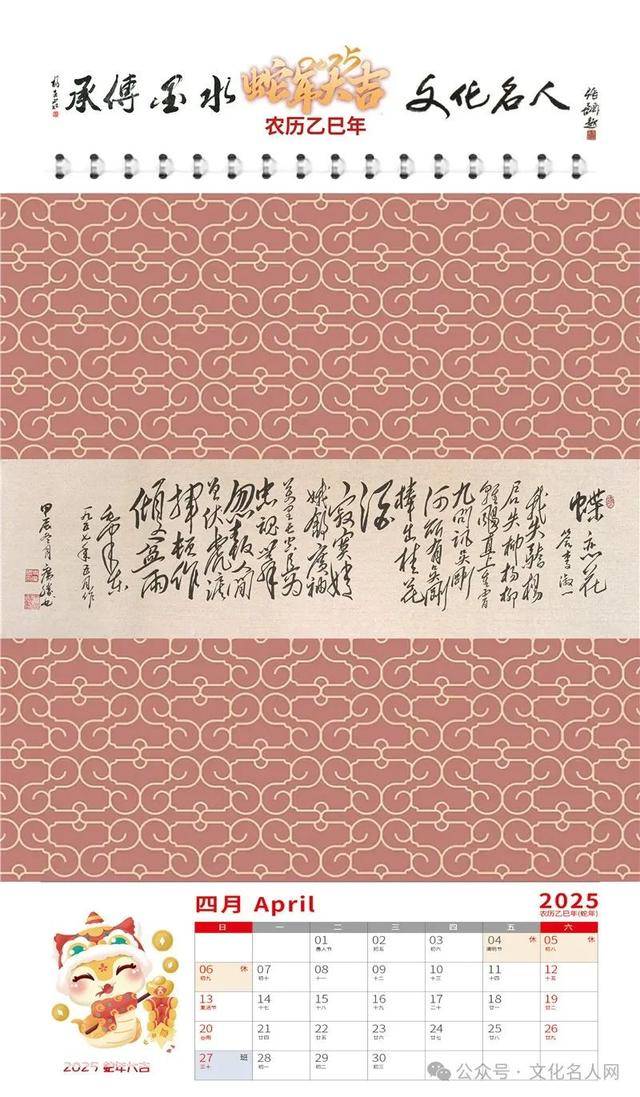 2025
承傳墨水 蛇年大吉 文化名人
农历乙巳年
蝶恋花
答李淑一
我失驕楊
君失柳楊柳
輕颺直上重霄
九問訊吳剛
何所有吳剛
捧出桂花
酒
寂寞嫦
娥舒廣袖
萬里長空且為
忠魂舞
忽報人間
曾伏虎淚
頓作
傾盆雨
毛澤東
一九五七年五月作
甲辰冬月
四月 April
2025
农历乙巳年(蛇年)
日 一 二 三 四 五 六
01 02 03 04 休 05 休
愚人节 初五 初六 清明节 初八
06 休 07 08 09 10 11 12
初九 初十 十一 十二 十三 十四 十五
13 14 15 16 17 18 19
十七 十八 十九 二十 廿一 廿二
20 21 22 23 24 25 26
谷雨 廿四 廿五 廿六 廿七 廿八 廿九
27 班 28 29 30
三十 初一 初二 初三
2025 蛇年大吉
公众号·文化名人网